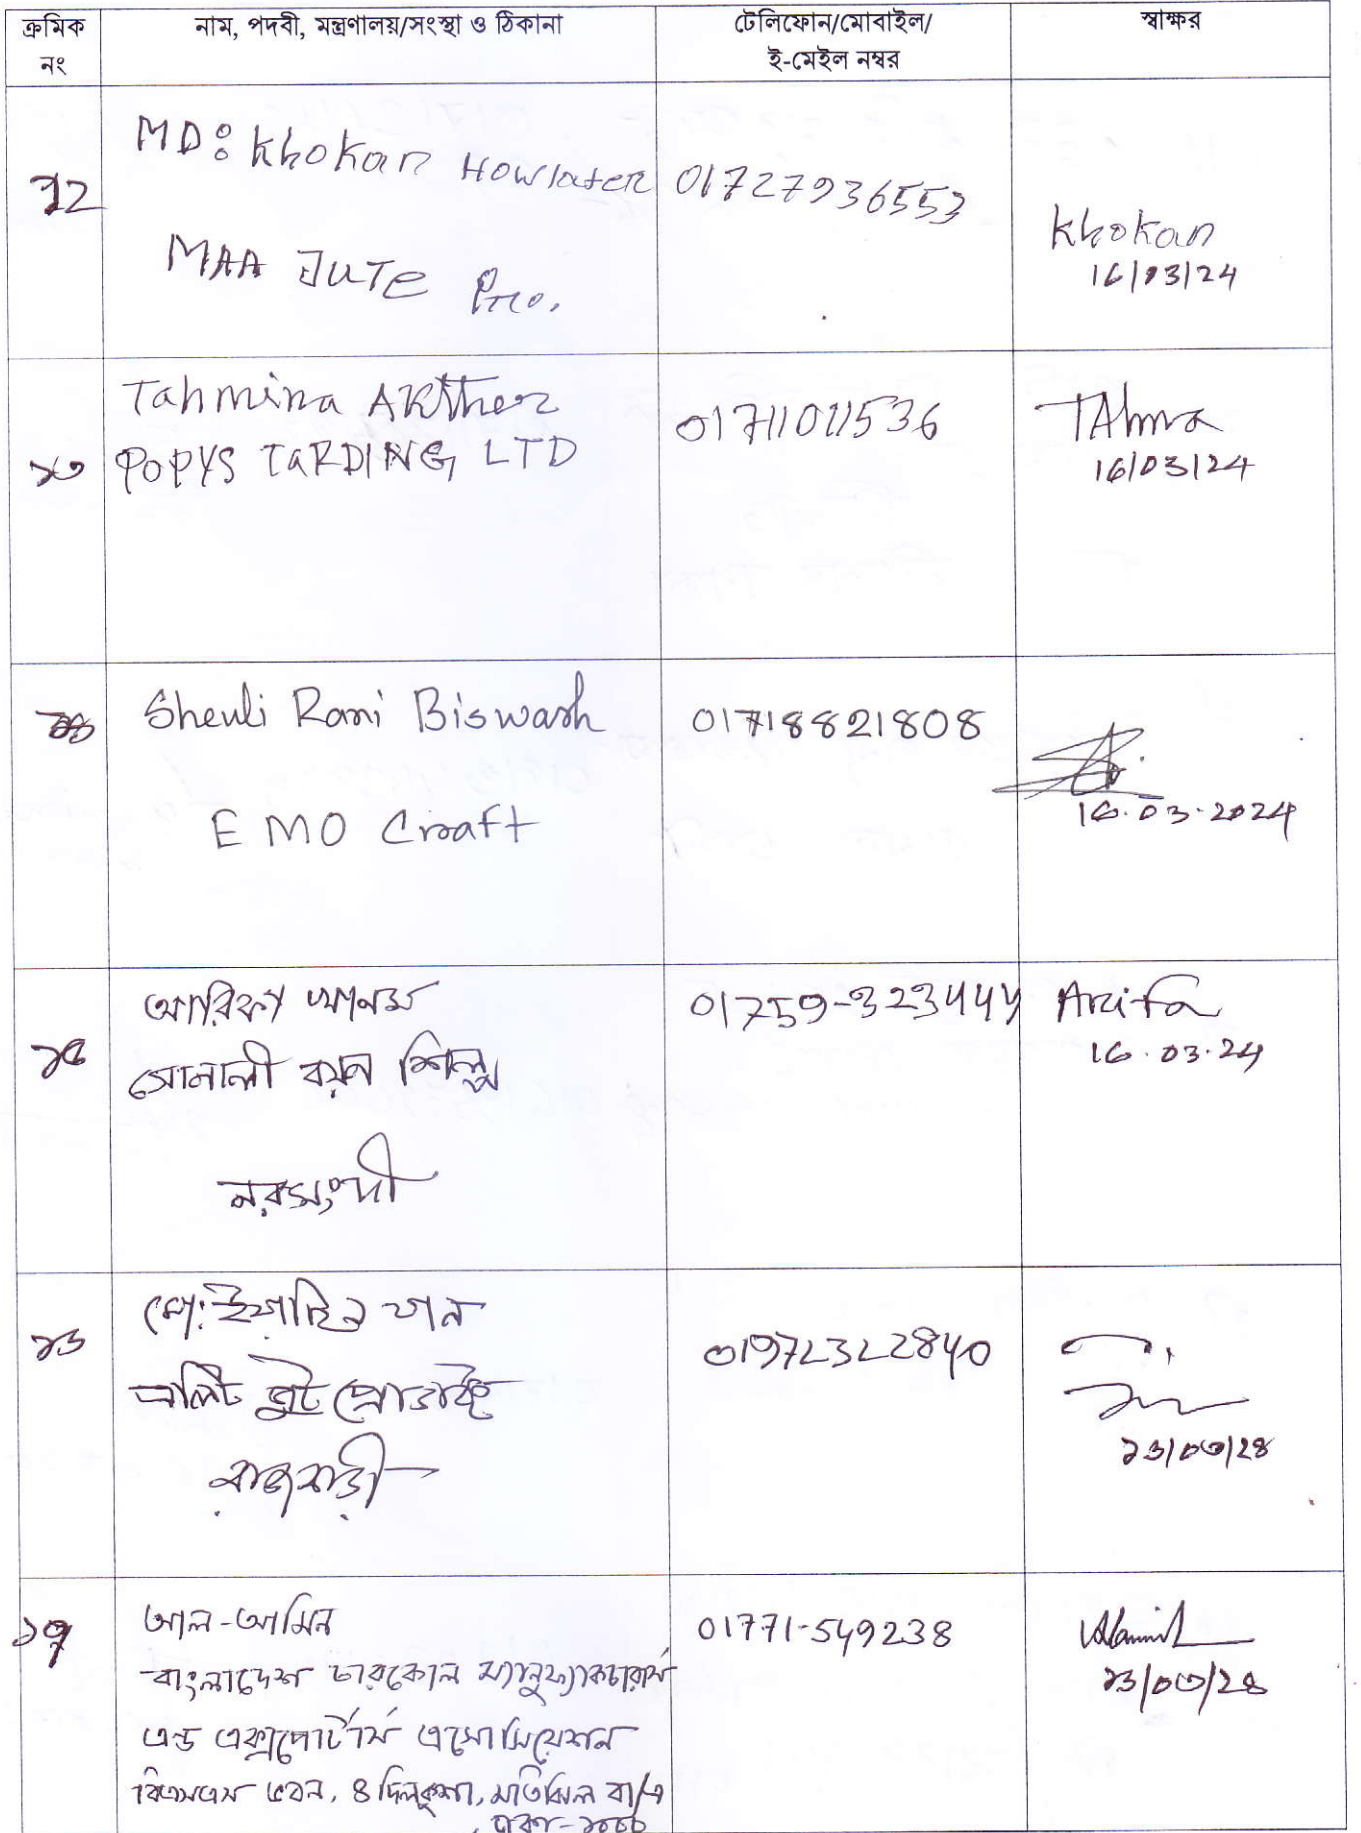 ক্রমিক নং
নাম, পদবী, মন্ত্রণালয়/সংস্থা ও ঠিকানা
টেলিফোন/মোবাইল/
ই-মেইল নম্বর
স্বাক্ষর
12
MD: Khokan Howlater
MAA JUTE Pro.
01727936553
Khokan
16/03/24
১৩
Tahmina Akther
POPYS TaRDING LTD
01711011536
16/03/24
১৪
Sheuli Rani Biswash
EMO Craft
01718821808
16.03.2024
১৫
আরিফা খানম
সোনালী বয়ন শিল্প
নরসংদী
01759-323444
Arifa
16.03.24
১৬
মো: ইয়াছিন খান
জুট প্রোডাক্ট
রাজবাড়ী
01972322840
১৬/০৩/২৪
১৭
আল-আমিন
বাংলাদেশ চারকোল ম্যানুফ্যাকচারার্স
এন্ড এক্সপোর্টার্স এসোসিয়েশন
বিএসএস ভবন, ৪ দিলকুশা, মতিঝিল বা/এ
, ঢাকা-১০০০
01771-549238
১৬/০৩/২৪